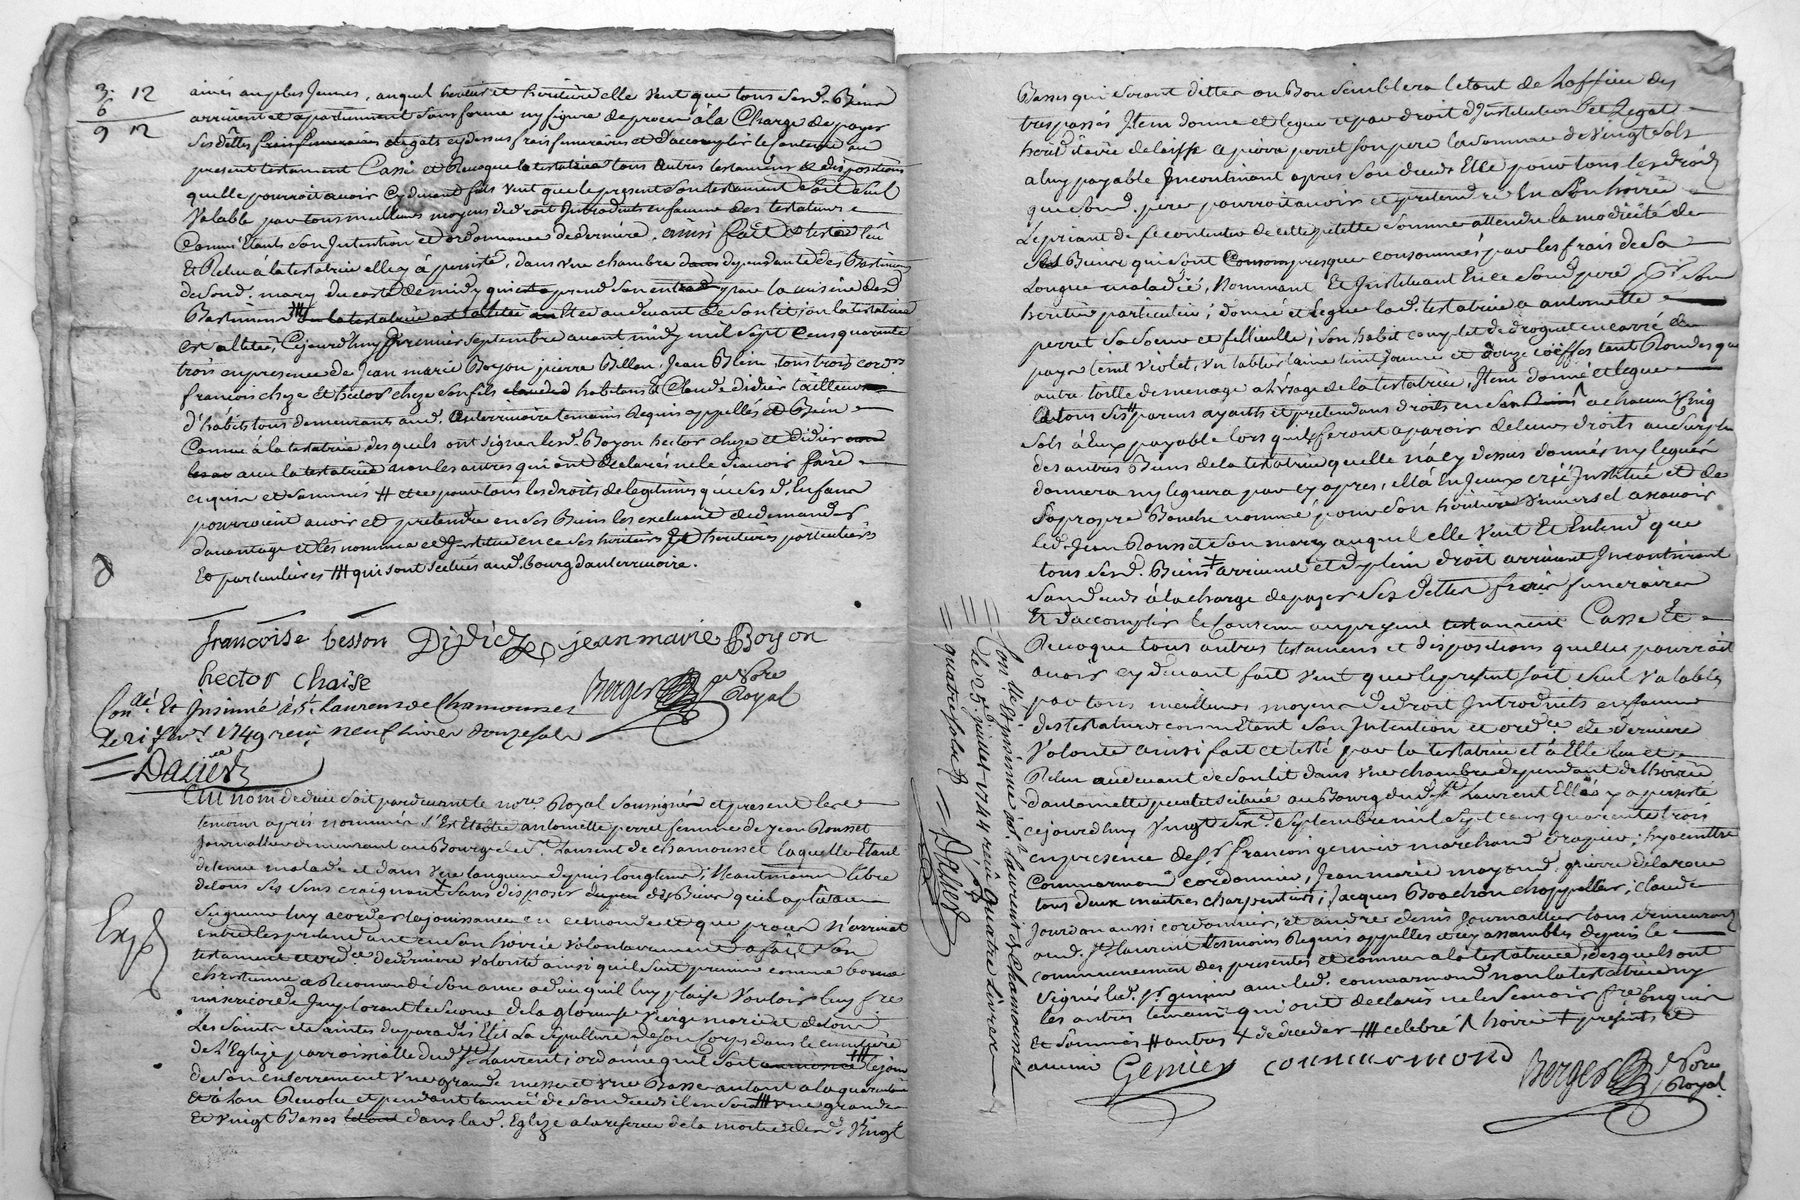 3. 12
6
9 12
ainés au plus Jeunes, auquel heritier et heritiere elle veut que tous sesd. Biens
arrivent et apartiennent sans forme ny figure de procès à la Charge de payer
Ses dettes frais funeraires et legats cydessus frais funeraires et d'accomplir le contenu au
present testament Casse et Revoque la testatrice tous autres testamens & dispositions
quelle pourroit avoir Cydevant faits veut que le present son testament soit seul
Valable par tous meilleurs moyens de droit Introduits en faveur des testateurs
Comme Etants son Intention et ordonnance de derniere. ainsi fait et testé lû
Et Relu à la testatrice elle y à persisté, dans une chambre dependante des Bastimens
de sond. mary du costé de midy qui prend son entrée par la cuisine desd
Bastimens # Et au devant de son lit ou la testatrice
est alitée, Cejourdhuy premier septembre avant midy mil sept cens quarante
trois en presence de Jean marie Boyon pierre Bellon, Jean Blein, tous trois cord.rs
françois cheze Et hector cheze son fils habitans & Claude didier tailleurs
d'habits tous demeurants aud. temoins Requis appellés et Bien
Connu à la testatrice, desquels ont signé lesd. Boyon hector cheze et didier
avec la testatrice non les autres qui ont declarés ne le sçavoir faire
enquis et sommés # et ce pour tous les droits de legitimes que ses d. Enfans
pourroient avoir et pretendre en ses Biens les excluant de demander
davantage et les nomme et Institue en ce ses heritiers et heritieres particuliers
Et particulieres ## qui sont scitués aud. bourg
françoise besson Didier jean marie Boyon
hector chaise Berger No.re Royal
Con.lé Et Insinué à S.t Laurens de Chamousset
Le 21 1749 reçu neuf livres douze sols
Dalier
Au nom de dieu soit pardevant le no.re Royal soussigné et present les
temoins après nommés s'Est Etablie antoinette perret femme de Jean Rousset
Journallier demeurant au Bourg de S.t Laurent de chamousset laquelle Etant
detenue malade et dans une langueur depuis longtems, Neantmoins libre
de tous ses sens craignant sans disposer des Biens qu'il a plû au
Seigneur luy accorder la jouissance en ce monde et que procès n'arrivat
entre les pretendant en son hoirie volontairement a fait son
testament et ord.ce de derniere volonté ainsi qu'il suit premier comme bonne
chretienne a Recomandé son ame a dieu qu'il luy plaise vouloir luy f.re
misericorde Implorant le secours de la glorieuse vierge marie et de tous
Les saints et saintes du paradis Elit La sepulture de son Corps dans le cimetiere
de l'Eglise parroissialle dud. S.t Laurent, ordonne qu'il soit ## le jour
de son enterrement une grande messe et une Basse autant a la quarantaine
Et à l'an Revolu et pendant l'année de son deceds il en sera ## une grande
Et vingt Basses dans lad. Eglise a la reserve de la moitié desd. Vingt
Exp.
Basses qui seront dittes ou Bon semblera le tout de l'office des
trespassés Item donne et legue et par droit d'Institution et Legat
hereditaire delaisse a pierre perret son pere la somme de vingt sols
a luy payable Incontinant après son deceds Et ce pour tous les droits
que sond. pere pourroit avoir et pretendre En son hoirie
Le priant de se contenter de cette petite somme attendu la modicité de
Ses Biens qui sont presque consommés par les frais de sa
Longue maladie, Nommant Et Instituant En ce sond. pere p.r son
heritier particulier; donne et Legue lad. testatrice a antoinette
perret sa soeur et fillieulle, son habit complet de droguet en carré du
pays teint violet, un tablier laine teint jaune et douze coiffes tant Rondes que
autre toille de menage a l'usage de la testatrice, Item donne et legue
a tous ses # parens ayants et pretendans droits en son ^ a chacun Cinq
sols à Eux payable lors qu'ils feront aparoir de leurs droits au surplus
des autres Biens de la testatrice quelle n'à cy dessus donnés ny legués
donnera ny leguera par cy après, ell'à En Iceux créé Institué et de
sa propre Bouche nommé pour son heritier universel a sçavoir
led. Jean Rousset son mary auquel elle veut Et Entend que
tous sesd. Biens + arrivent et de plein droit arrivant Incontinant
son deceds à la charge de payer ses dettes frais funeraires
Et d'accomplir le Contenu au present testament Casse Et
Revoque tous autres testamens et dispositions quelle pourroit
avoir cy devant fait veut que le present soit seul valable
par tous meilleurs moyens de droit Introduits en faveur
des testateurs comme Etant son Intention et ord.ce de derniere
Volonté ainsi fait et testé par la testatrice et à Elle lu et
Relu au devant de son lit dans une chambre dependant de l'hoirie
d'antoinette perret scituée au Bourg dud. S.t Laurent Elle y a persisté
cejourdhuy vingt six.e Septembre mil sept cens quarante trois
en presence de S.r françois genier marchand drapier, hyacinthe
Commarmond cordonnier, Jean marie mayoud, pierre delaroue
tous deux maitres charpentiers, Jacques Bouchon chappellier, claude
Jourdan aussi cordonnier, et andré denis Journallier tous demeurants
aud. S.t Laurent temoins Requis appellés et assemblés depuis le
commencement des presentes et connus a la testatrice, desquels ont
signés led. S.r genier avec led. commarmond non la testatrice ny
les autres temoins qui ont declarés ne le sçavoir f.re Enquis
Et sommés # autres + de deceder ## celebré ^ hoirie + presents et
avenir Genier coumarmond Berger No.re Royal
Con.lé & insinué à S.t Laurent de Chamousset
Le 25 juillet 1744 reçû quatre Livres
quatre sols
Dalier